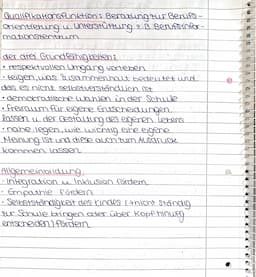 Qualifikationsfunktion: Beratung zur Berufs-
orientierung u. Unterstützung z.B. Berufsinfor-
mationszentrum
der drei Grundfähigkeiten:
• respektvollen Umgang vorleben
• zeigen, was Zusammenhalt bedeutet und
das es nicht selbstverständlich ist
• demokratische Wahlen in der Schule
• Freiraum für eigene Entscheidungen
lassen u. der Gestaltung des eigenen Lebens
• nahe legen, wie wichtig eine eigene
Meinung ist und diese auch zum Ausdruck
kommen lassen
Allgemeinbildung
- Integration u. Inklusion fördern
- Empathie fördern
- Selbstständigkeit des Kindes (→ nicht ständig
zur Schule bringen oder über Kopf hinweg
entscheiden) fördern